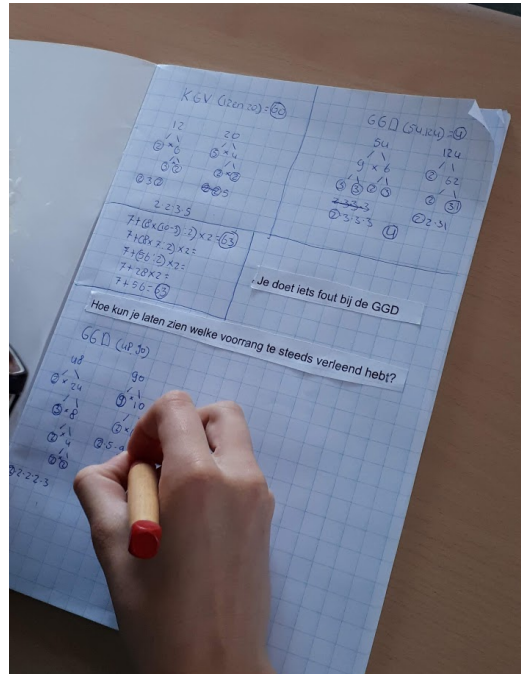 KGV (12 en 20) = 60
12
20
2 × 6
5 × 4
3 2
2 × 2
2 3 2
5
2·2·3·5
GGD (54,124) = 4
54
124
9 × 6
2 62
3 3 2 3
2 31
2·3·3·3
2·2·31
4
7+(8×(10-3):2)×2= 63
7+(8×7:2)×2=
7+(56:2)×2=
7+28×2=
7+56= 63
Je doet iets fout bij de GGD
Hoe kun je laten zien welke voorrang te steeds verleend hebt?
GGD (48,90)
48
90
2 × 24
9 × 10
3 × 8
2 ×
2 × 4
2·5·9
2 2
2·2·2·2·3